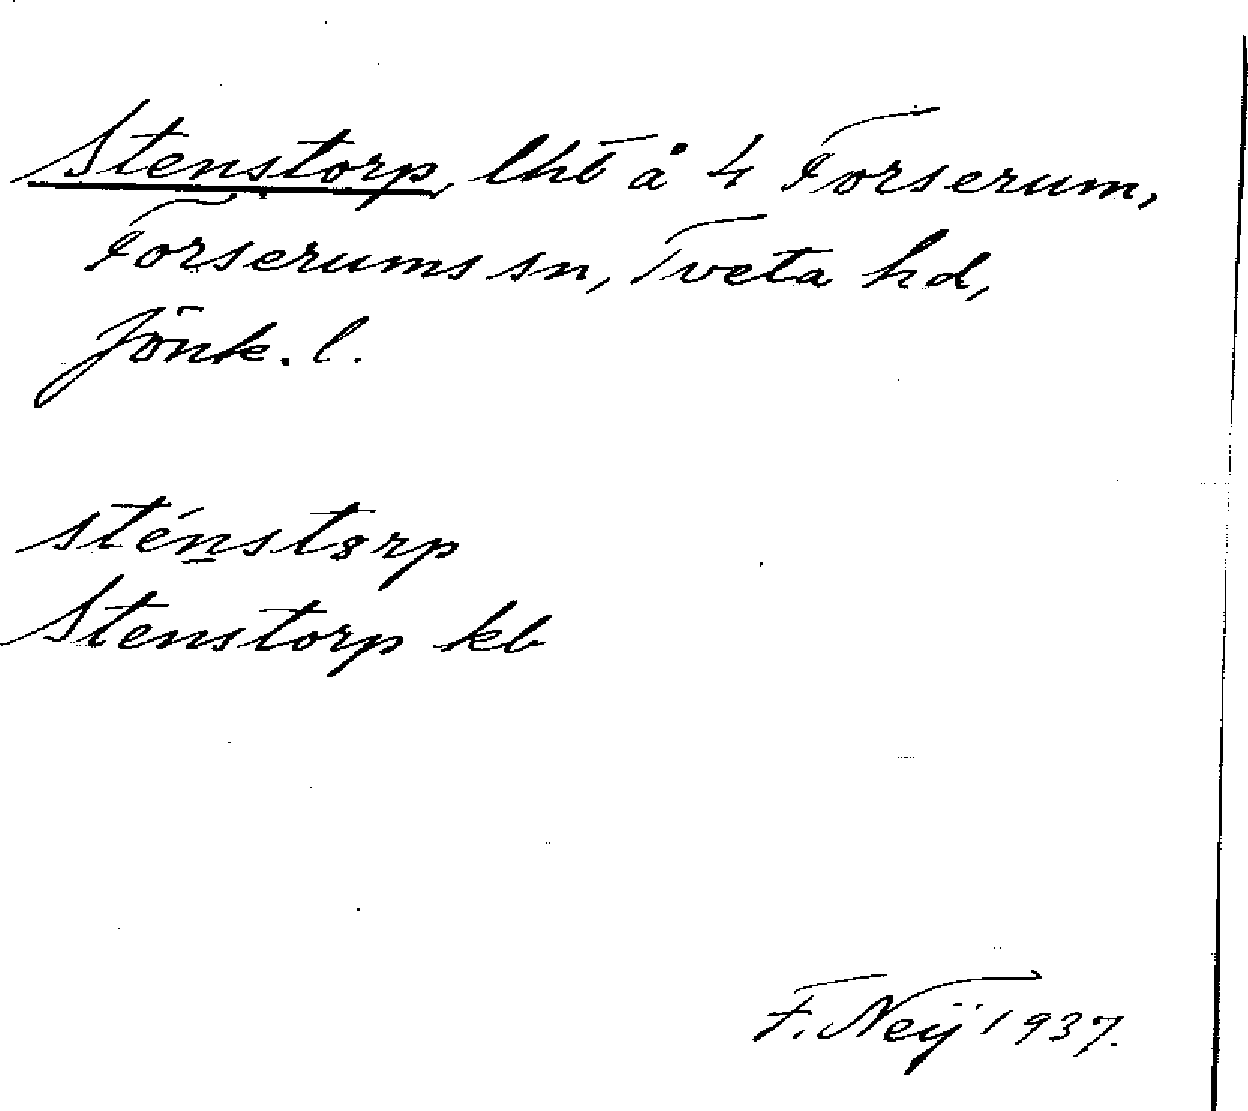 Stenstorp, lht å 4 Forserum,
Forserums sn, Tveta hd,
Jönk. l.
sténstorp
Stenstorp kb
F. Neij 1937.